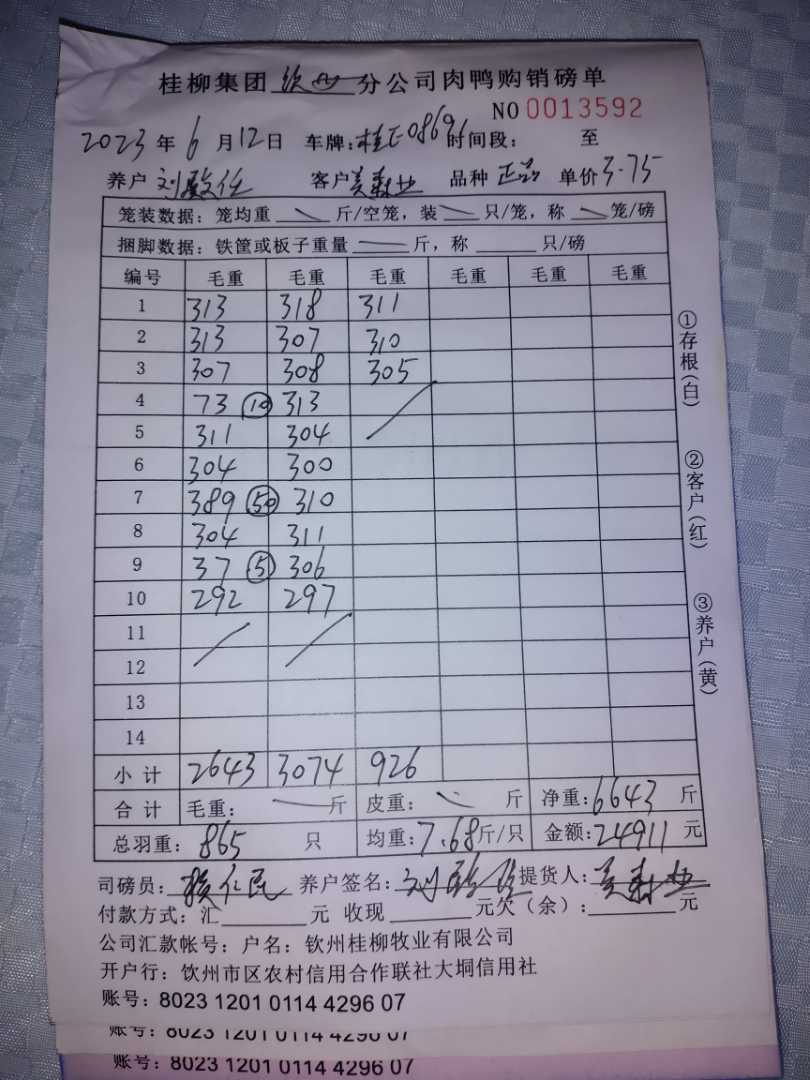 桂柳集团钦州分公司肉鸭购销磅单
NO 0013592
2023年6月12日 车牌:桂E08696 时间段: 至
养户 刘 客户 品种 正品 单价 3.75
笼装数据: 笼均重 斤/空笼, 装 只/笼, 称 笼/磅
捆脚数据: 铁筐或板子重量 斤, 称 只/磅
编号 毛重 毛重 毛重 毛重 毛重 毛重
1 313 318 311
2 313 307 310
3 307 308 305
4 73 ⑩ 313
5 311 304
6 304 300
7 389 ㊿ 310
8 304 311
9 37 ⑤ 306
10 292 297
11
12
13
14
小计 2643 3074 926
合计 毛重: 斤 皮重: 斤 净重: 6643 斤
总羽重: 865 只 均重: 7.68 斤/只 金额: 24911 元
司磅员: 养户签名: 刘 提货人:
付款方式: 汇 元 收现 元 欠(余): 元
公司汇款帐号: 户名: 钦州桂柳牧业有限公司
开户行: 钦州市区农村信用合作联社大垌信用社
账号: 8023 1201 0114 4296 07
账号: 8023 1201 0114 4296 07
账号: 8023 1201 0114 4296 07
①存根(白)
②客户(红)
③养户(黄)